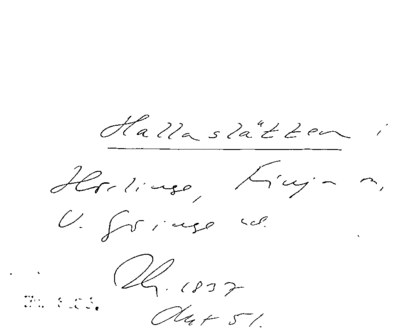 Hallaslätten i
Hörlinge, Finja m,
V. Göinge hd.
1837
Akt 51.